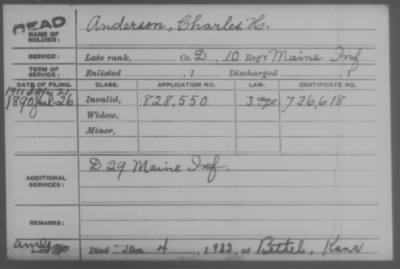 DEAD
NAME OF SOLDIER: Anderson, Charles H.
SERVICE: Late rank, Co. D, 10 Reg't Maine Inf.
TERM OF SERVICE: Enlisted , 1 Discharged , 1
DATE OF FILING. CLASS. APPLICATION NO. LAW. CERTIFICATE NO.
1890 Jul-26 Invalid, 828,550 726,618
Widow,
Minor,
ADDITIONAL SERVICES: D 29 Maine Inf.
REMARKS:
Died Jan 4, 1922, at Bethel, Kans